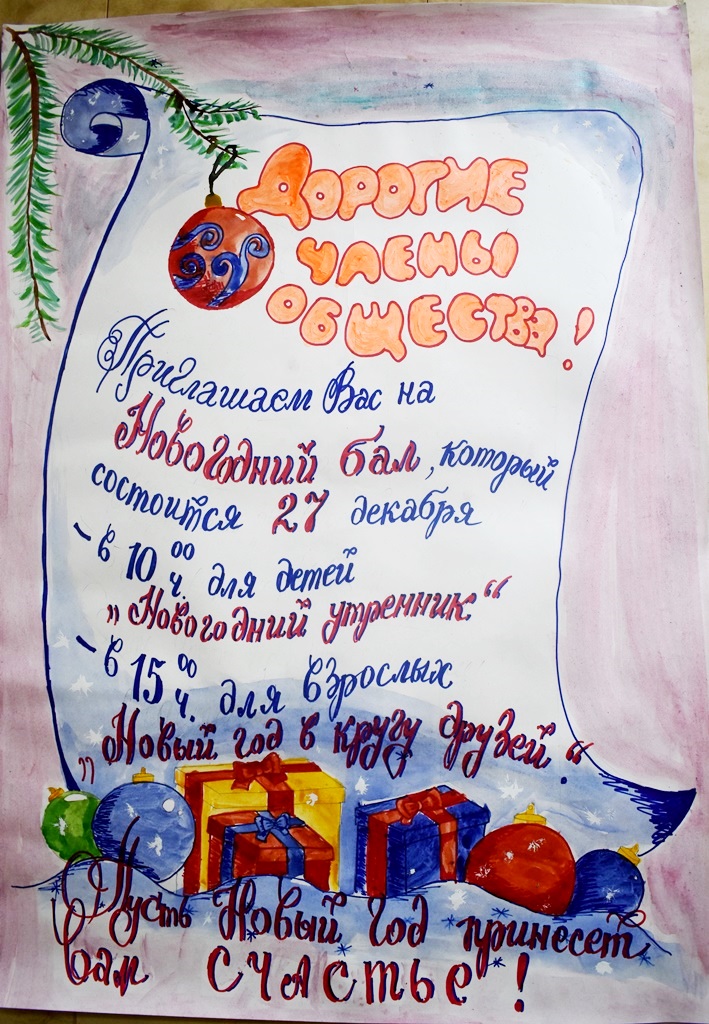 Дорогие
члены
общества!
Приглашаем Вас на
Новогодний бал, который
состоится 27 декабря
- в 10 00 ч. для детей
„Новогодний утренник“
- в 15 00 ч. для взрослых
„Новый год в кругу друзей“.
Пусть Новый Год принесет
вам счастье!